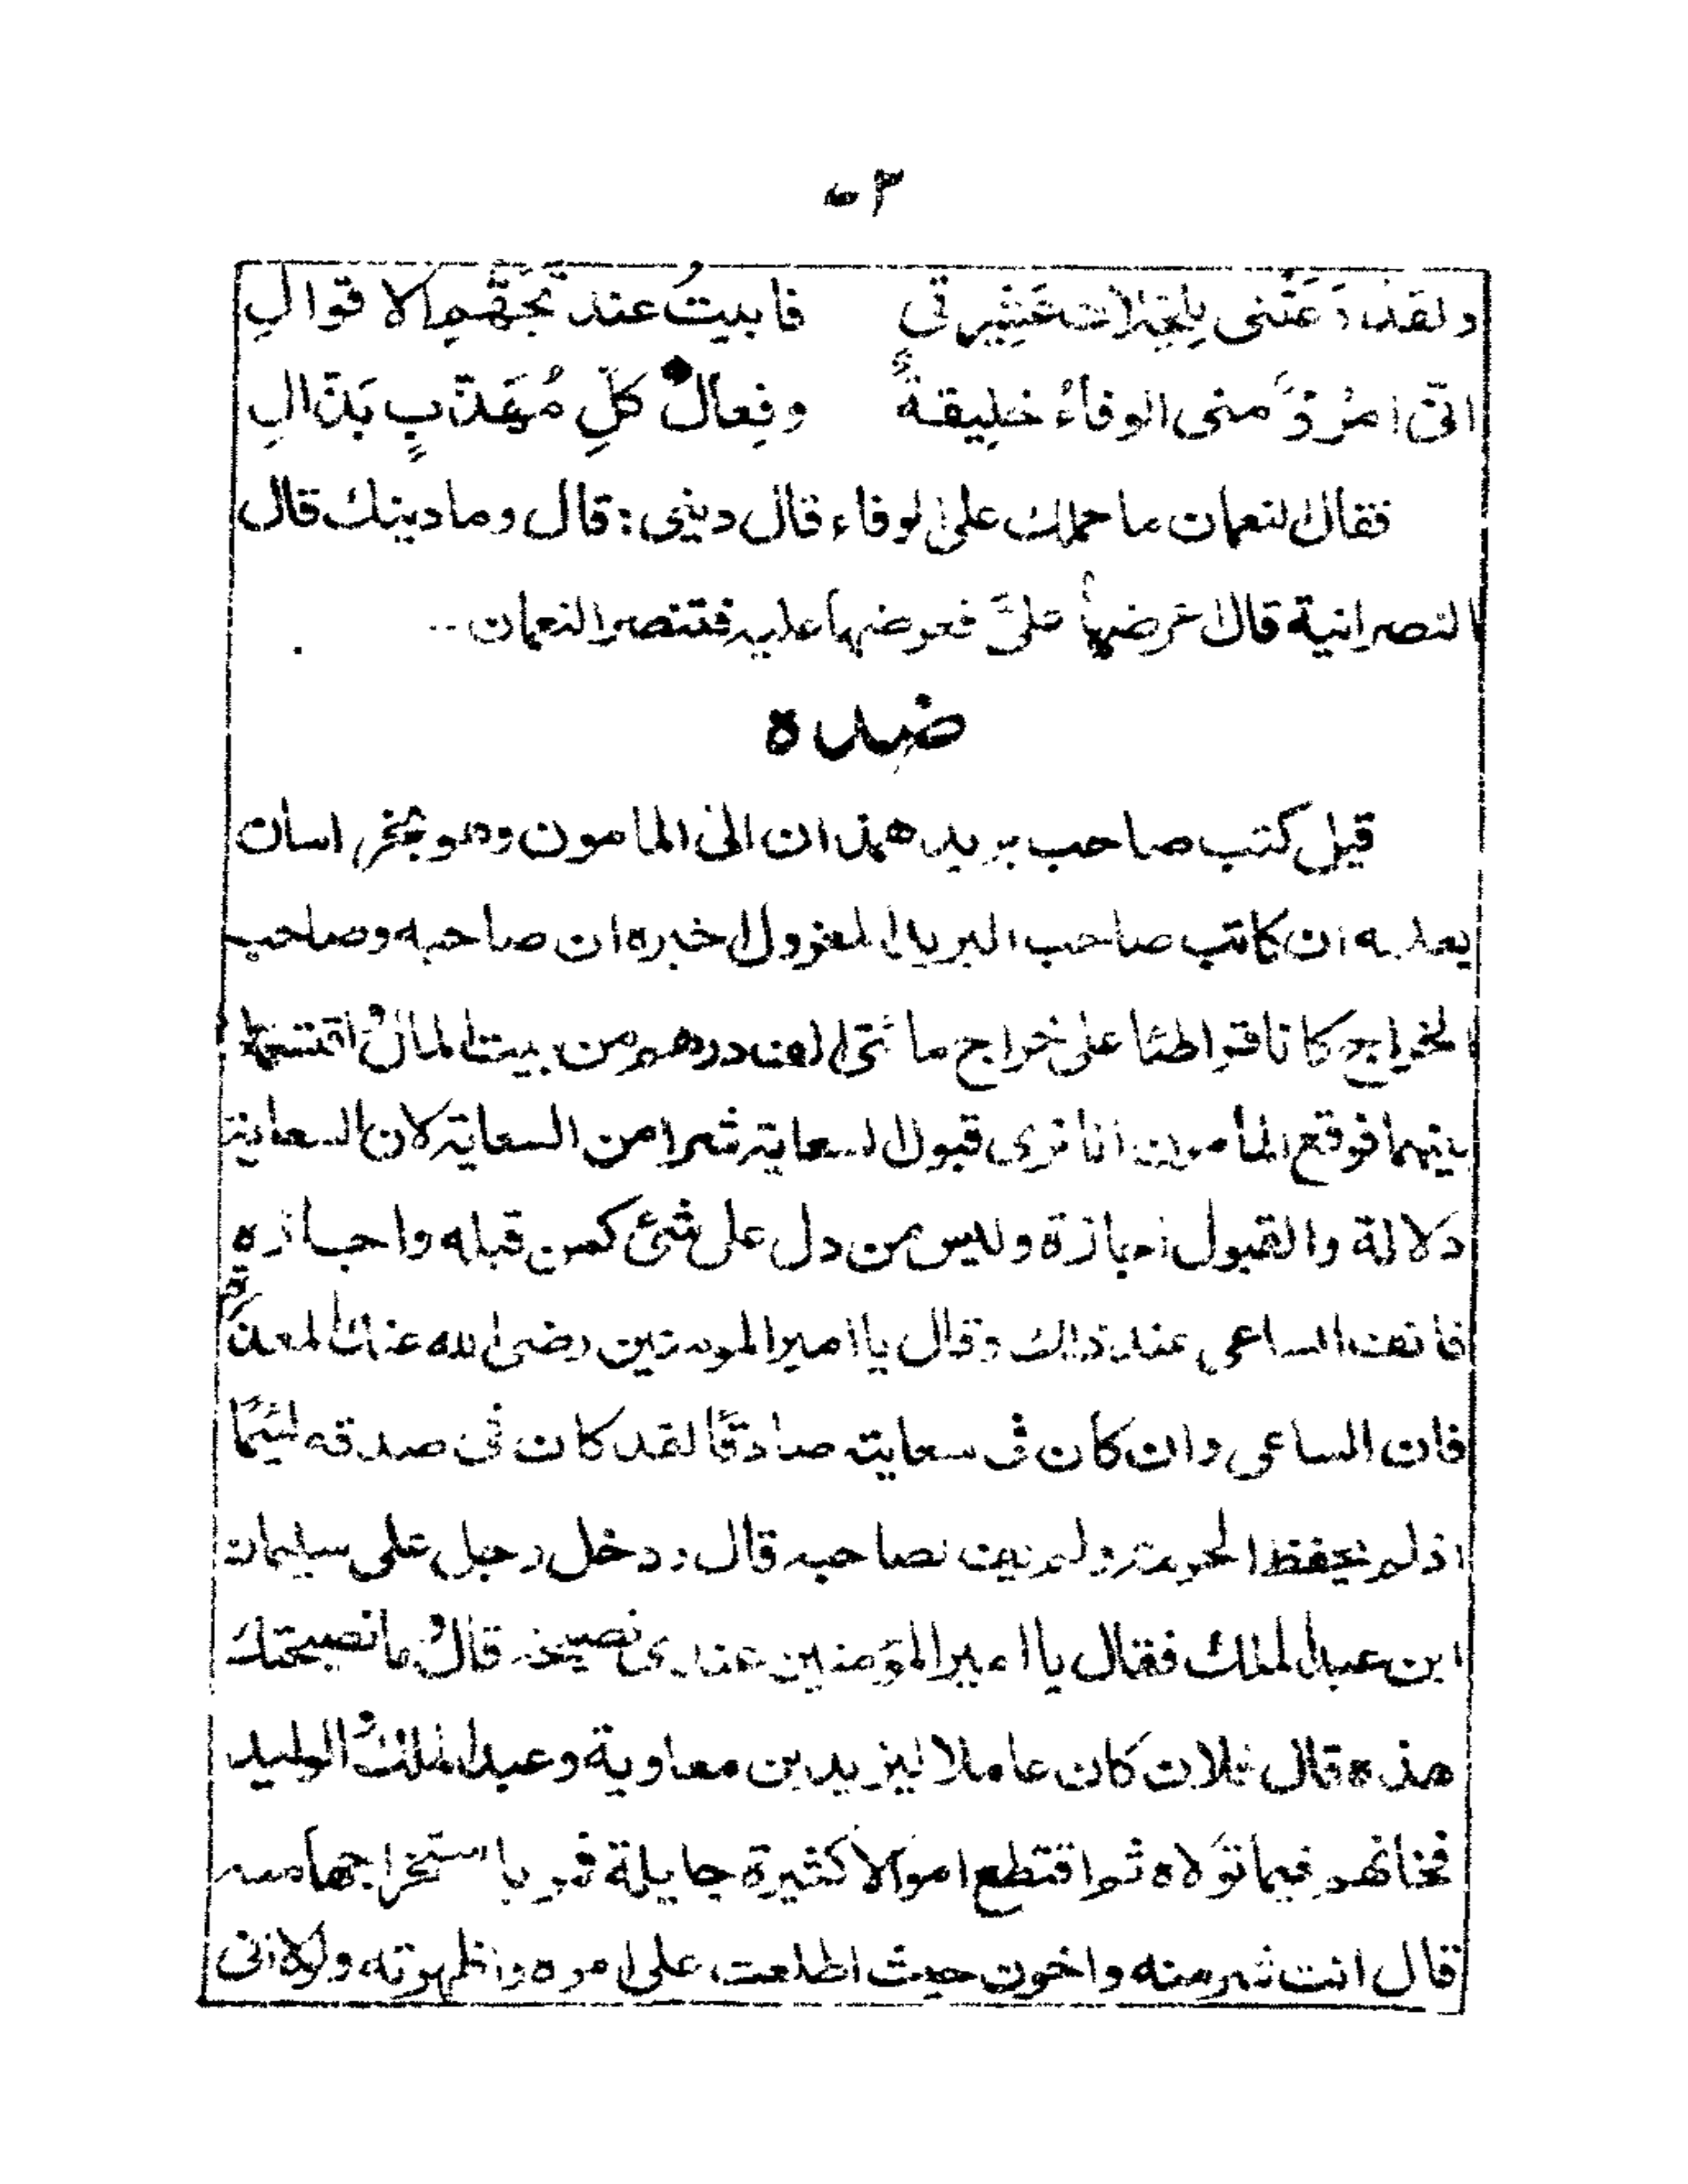 ٥٣
ولقد دَعَتْنى لِلخِلاف عَشِيرتى فابيتُ عند تَجَهُّمِ الاقوالِ
انّى امرُؤٌ منى الوفاءُ خليقةً وفِعالُ كلِّ مُهَذّبٍ بَذّالِ
فقال النعمان ما حملك على الوفاء قال دينى : قال وما دينك قال
النصرانية قال عرضها علىَّ فعرضها عليه فتنصر النعمان ..
ضده
قيل كتب صاحب بريد همذان الى المامون وهو بخراسان
يعلمه ان كاتب صاحب البريد المعزول اخبره ان صاحبه وصاحب
الخراج كانا تواطئا على خراج مائتى الف درهم من بيت المال اقتسماها
بينهما فوقع المأمون انا نرى قبول السعاية شرا من السعاية لان السعاية
دلالة والقبول اجازة وليس من دل على شئ كمن قبله واجازه
فانف الساعى عند ذلك وقال يا امير المومنين رضى الله عنك المعذرة
فان الساعى وان كان فى سعايته صادقًا لقد كان فى صدقه لئيمًا
اذ لم يحفظ الحرمة ولم يف لصاحبه قال ودخل رجل على سليمان
ابن عبد الملك فقال يا امير المؤمنين عندى نصيحة قال ما نصيحتك
هذه قال فلان كان عاملا ليزيد بن معاوية وعبد الملك والوليد
فخانهم فيما تولاه ثم اقتطع اموالا كثيرة جليلة فمر باستخراجها منه
قال انت شر منه واخون حيث اطلعت على امره واظهرته ولولا انى